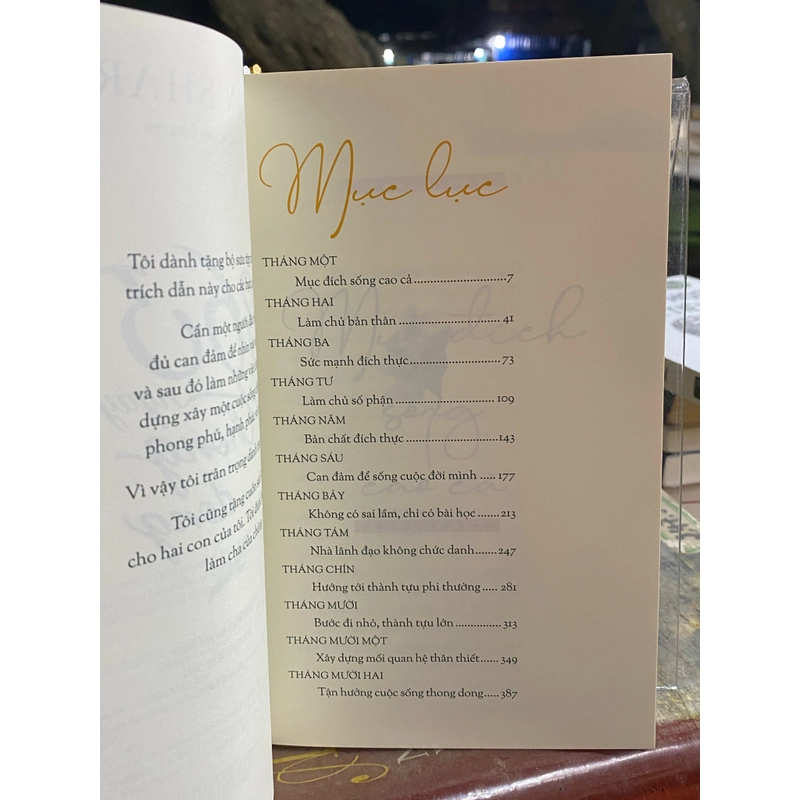 SHAR
Tôi dành tặng bộ sưu tập
trích dẫn này cho các bạn
Cần một người
đủ can đảm để nhìn
và sau đó làm những
dựng xây một cuộc sống
phong phú, hạnh phúc
Vì vậy tôi trân trọng dành
Tôi cũng tặng cuốn
cho hai con của tôi. Tôi
làm cha của
Mục lục
THÁNG MỘT
Mục đích sống cao cả..............................7
THÁNG HAI
Làm chủ bản thân ..............................41
THÁNG BA
Sức mạnh đích thực..............................73
THÁNG TƯ
Làm chủ số phận ..............................109
THÁNG NĂM
Bản chất đích thực..............................143
THÁNG SÁU
Can đảm để sống cuộc đời mình .....177
THÁNG BẢY
Không có sai lầm, chỉ có bài học.......213
THÁNG TÁM
Nhà lãnh đạo không chức danh.......247
THÁNG CHÍN
Hướng tới thành tựu phi thường..... 281
THÁNG MƯỜI
Bước đi nhỏ, thành tựu lớn .............. 313
THÁNG MƯỜI MỘT
Xây dựng mối quan hệ thân thiết......349
THÁNG MƯỜI HAI
Tận hưởng cuộc sống thong dong.....387